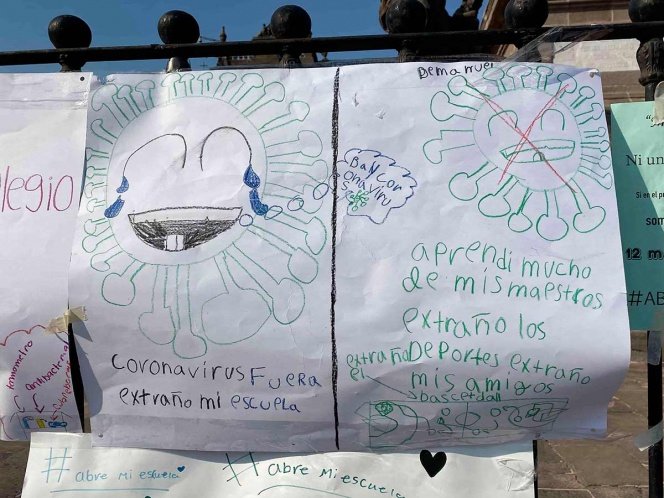 legio
Coronavirus FUera
extraño mi escuela
Demamuei
aprendi mucho
de mis maestros
extraño los
DePortes extraño
mis amigos
extraño
el
bascetball
Ni un
Si en el pr
som
12 m
#AB
# abre mi escuela
# abre mi escuela